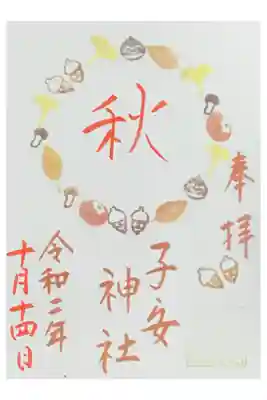 奉拝
秋
子安
神社
令和二年
十月十四日